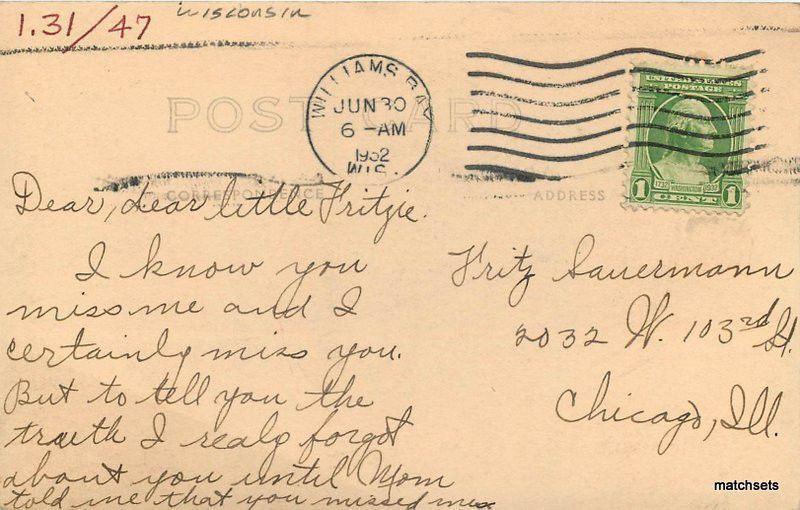 1.31/47
Wisconsin
POST CARD
WILLIAMS BAY
JUN 30
6 - AM
1932
WIS.
UNITED STATES
POSTAGE
1732 WASHINGTON 1932
1 CENT 1
CORRESPONDENCE
ADDRESS
Dear, dear little Fritzie.
I know you
miss me and I
certainly miss you.
But to tell you the
truth I realy forgot
about you until Mom
told me that you missed me
Fritz Sauermann
2032 W. 103rd St.
Chicago, Ill.
matchsets